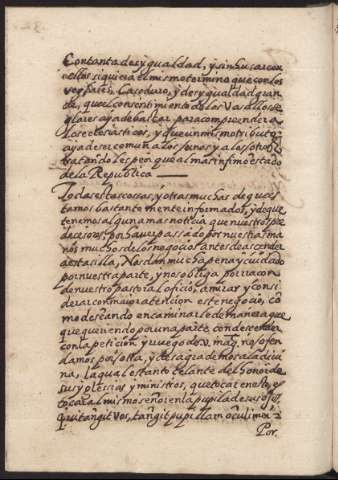 Con tanta desygualdad, y sin usar con
ellos siquiera el mismo termino que con los
seglares, Caso duro, y desygualdad grande,
que el consentimiento de los Vasallos se
glares aya de bastar para comprender a
los eclesiasticos, y que un mismo tributo
aya de ser comun a los unos y a los otros
tratandoles peor que al mas infimo estado
de la Republica
Todas estas cossas, y otras muchas de que es
tamos bastantemente informados, y de que
tenemos alguna mas notiçia que nuestros pre
decesores, por haver passado por nuestras ma
nos muchos de los negoçios antes de ascender
a esta silla, Nos dan mucha pena y cuidado
por nuestra parte, y nos obliga por raçon
de nuestro pastoral ofiçio, a mirar y consi
derar con maior atençion este negoçio, co
mo deseando encaminarle de manera que
que queriendo por una parte condescender
con la petiçion y ruego de V. mag. no ofen
damos por otra, y
na, la qual es tan zelante del honor de
sus yglessias y ministros, que tocar en esto, es
tocar al mismo señor en la pupila de sus ojos,
Qui tangit vos, tangit pupillam oculi mei
Por